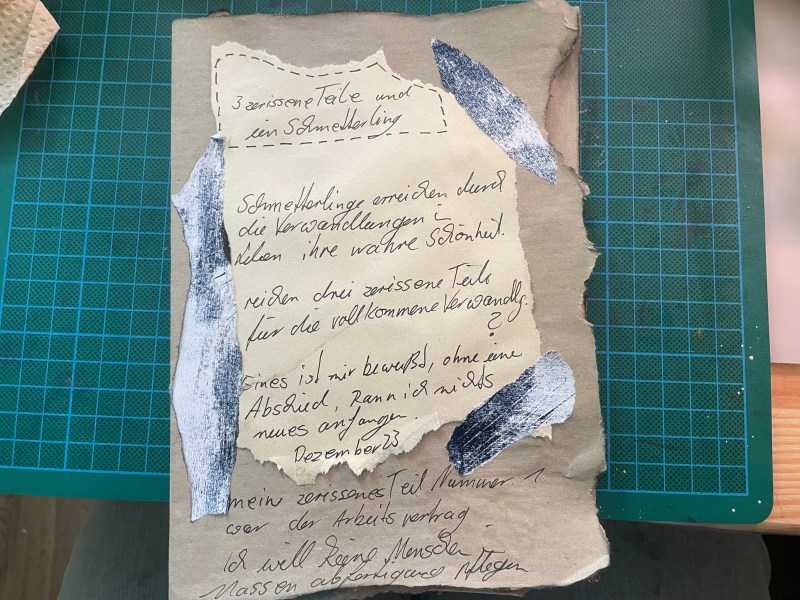 3 zerissene Teile und
ein Schmetterling
Schmetterlinge erreichen durch
die Verwandlungen
ihre wahre Schönheit.
reichen drei zerissene Teile
für die vollkommene Verwandlg.
?
Eines ist mir bewußt, ohne eine
Abschied, kann ich nichts
neues anfangen.
Dezember 23
mein zerissenes Teil Nummer 1
war der Arbeitsvertrag
ich will keine Menschen
Massenabfertigung pflegen